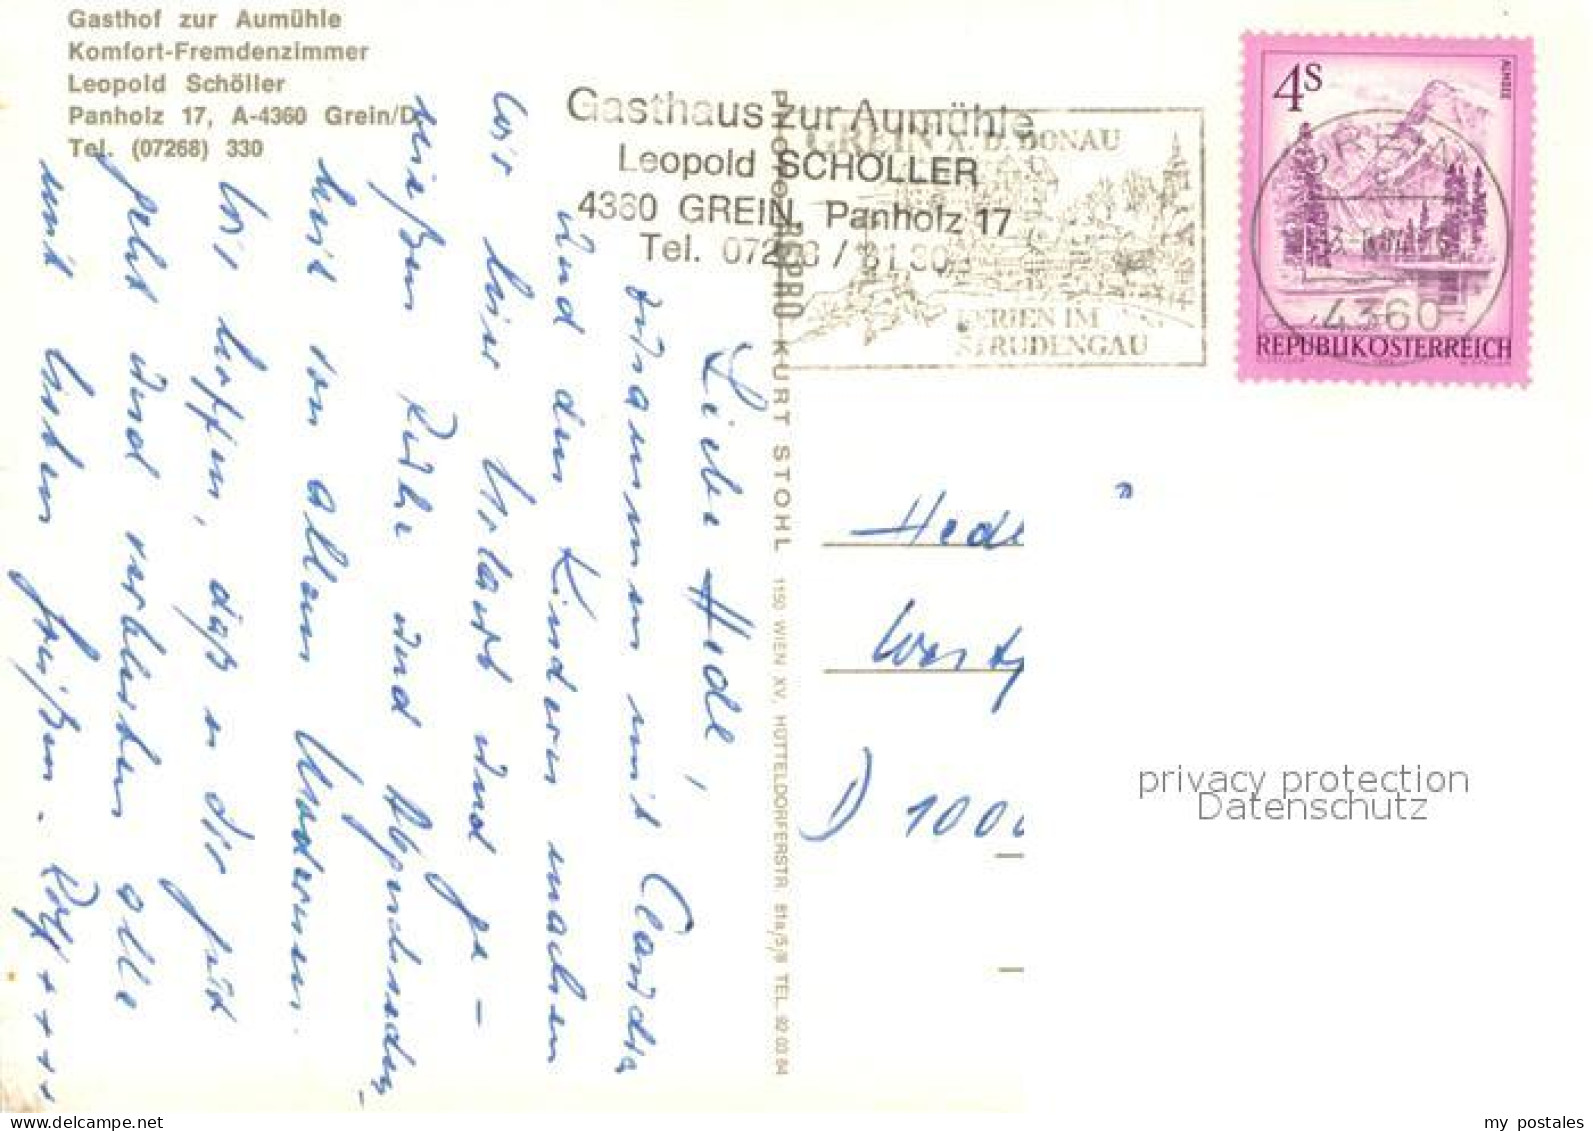 Gasthof zur Aumühle
Komfort-Fremdenzimmer
Leopold Schöller
Panholz 17, A-4360 Grein/D.
Tel. (07268) 330
Gasthaus zur Aumühle
Leopold SCHÖLLER
4360 GREIN, Panholz 17
Tel. 07268 /
GREIN A. D. DONAU
FERIEN IM
STRUDENGAU
4S
ALMSEE
GREIN
4360
REPUBLIK ÖSTERREICH
Liebe Hedl,
zusammen mit Claudia
und den Kindern machen
wir hier Urlaub und ge-
nießen Ruhe und
weit von allem
Wir hoffen, daß es dir gut
geht und verbleiben alle
mit lieben Grüßen. Rolf + + + +
KURT STOHL 1150 WIEN XV, HÜTTELDORFERSTR. 81a/5/8 TEL. 92 03 64
Hedl
D 1000
privacy protection
Datenschutz
my postales